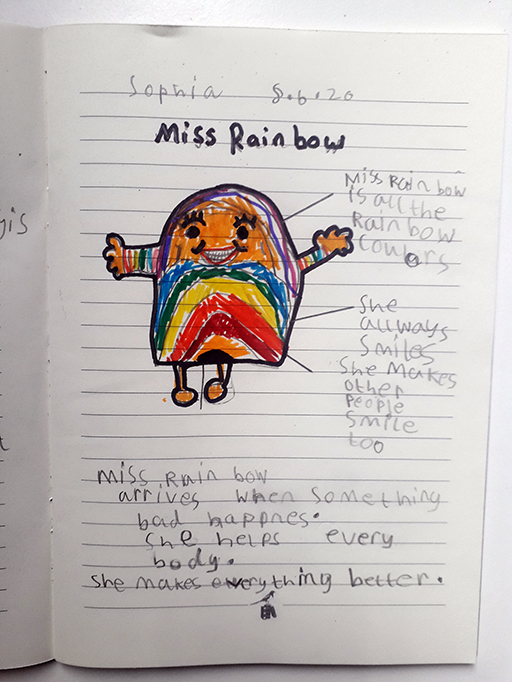 Sophia 8.6.20
Miss Rainbow
Miss Rain bow
is all the
Rainbow
coulors
She
allways
smiles
She makes
other
People
smile
too
miss Rain bow
arrives when something
bad happnes.
She helps every
body.
She makes everything better.